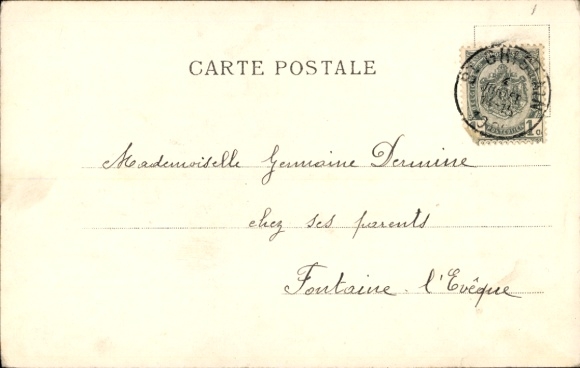 CARTE POSTALE
ST GHISLAIN
1 c.
Mademoiselle Germaine Dermine
chez ses parents
Fontaine - l'Evêque